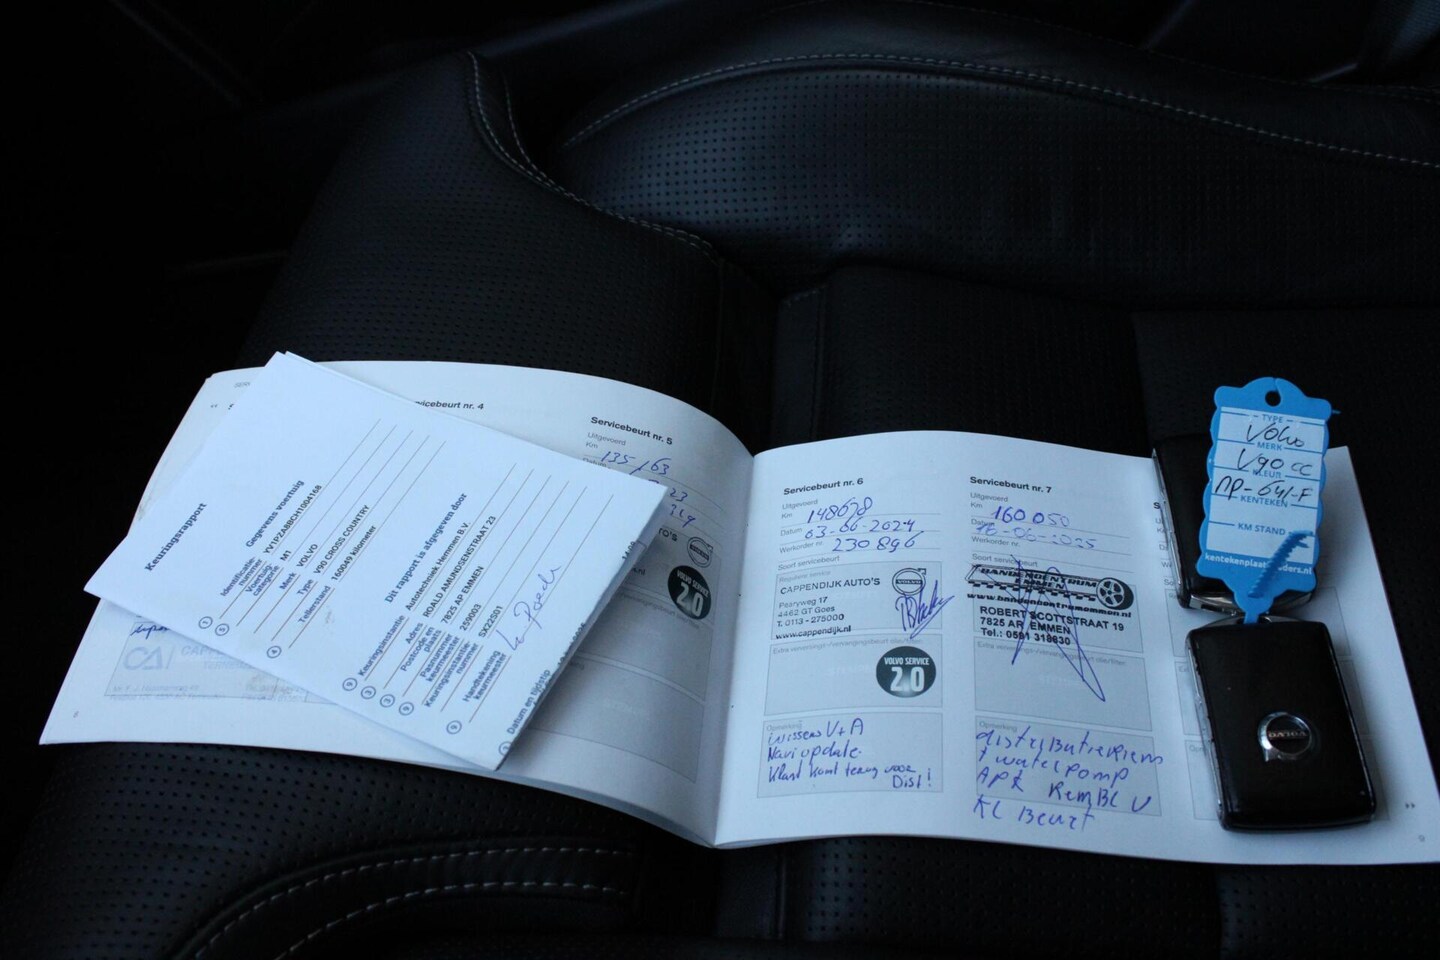 Keuringsrapport
Gegevens voertuig
Identificatie-
nummer YV1PZA8BCH1004168
Voertuig-
categorie M1
Merk VOLVO
Type V90 CROSS COUNTRY
Tellerstand 160049 kilometer
Dit rapport is afgegeven door
Keuringsinstantie Autotechniek Hemmen B.V.
Adres ROALD AMUNDSENSTRAAT 23
Postcode en
plaats 7825 AP EMMEN
Pasnummer
keurmeester 259003
Keuringsinstantie
nummer SX22S01
Handtekening
keurmeester
Datum en tijdstip
Servicebeurt nr. 4
Servicebeurt nr. 5
Uitgevoerd
Km 135163
VOLVO SERVICE
2.0
8
Servicebeurt nr. 6
Uitgevoerd
Km 148678
Datum 03-06-2024
Werkorder nr. 230896
Soort servicebeurt
Reguliere service
CAPPENDIJK AUTO'S
Paaryweg 17
4462 GT Goes
T. 0113 - 275000
www.cappendijk.nl
VOLVO
VOLVO SERVICE
2.0
Opmerking
Navi update
Klant komt terug voor
Dist!
Servicebeurt nr. 7
Uitgevoerd
Km 160.050
Datum 16-06-2025
Werkorder nr.
Soort servicebeurt
BANDENCENTRUM
EMMEN
www.bandencentrumemmen.nl
ROBERT SCOTTSTRAAT 19
7825 AR EMMEN
Tel.: 0591 318630
Opmerking
distributieriem
+ waterpomp
APK RemBL V
KL Beurt
9
TYPE
Volvo
MERK
V90 CC
KLEUR
NP-641-F
KENTEKEN
KM STAND
VOLVO